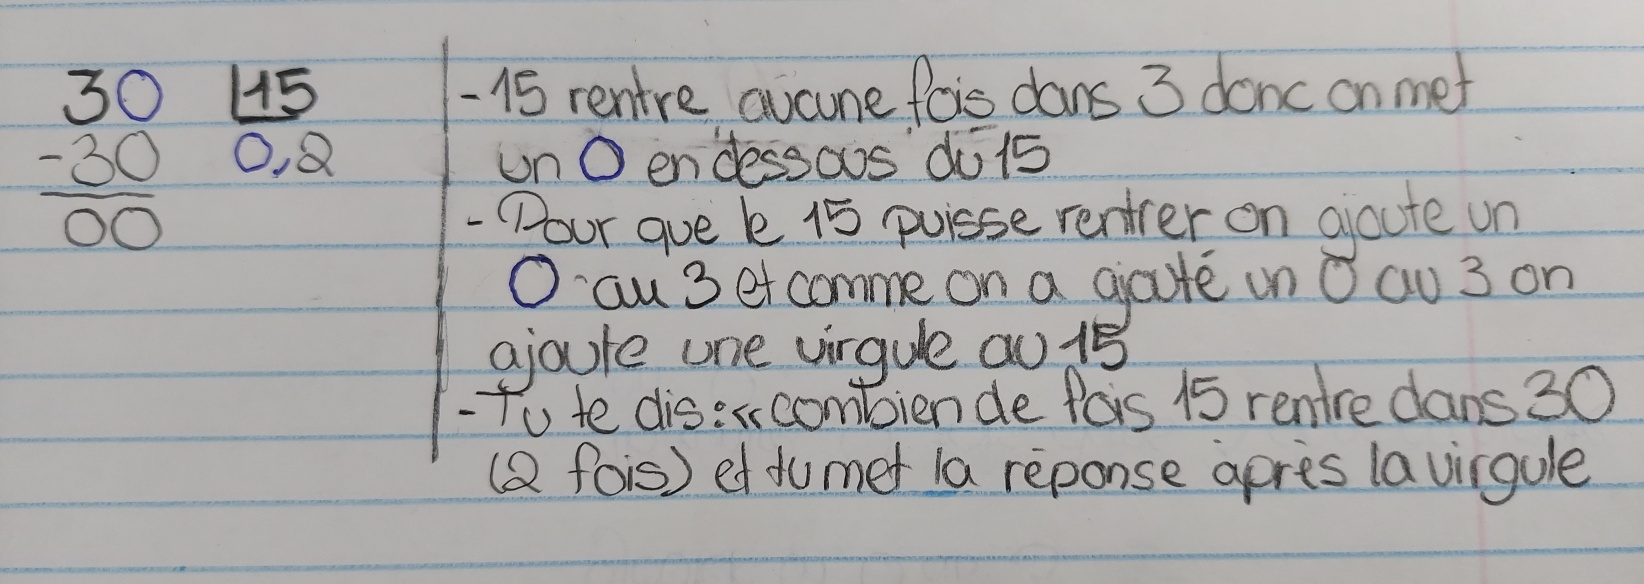 30 15
-30 0,2
00
- 15 rentre aucune fois dans 3 donc on met
un 0 en dessous du 15
- Pour que le 15 puisse rentrer on ajoute un
0 au 3 et comme on a ajouté un 0 au 3 on
ajoute une virgule au 15
- Tu te dis : « combien de fois 15 rentre dans 30
(2 fois) et tu met la réponse après la virgule